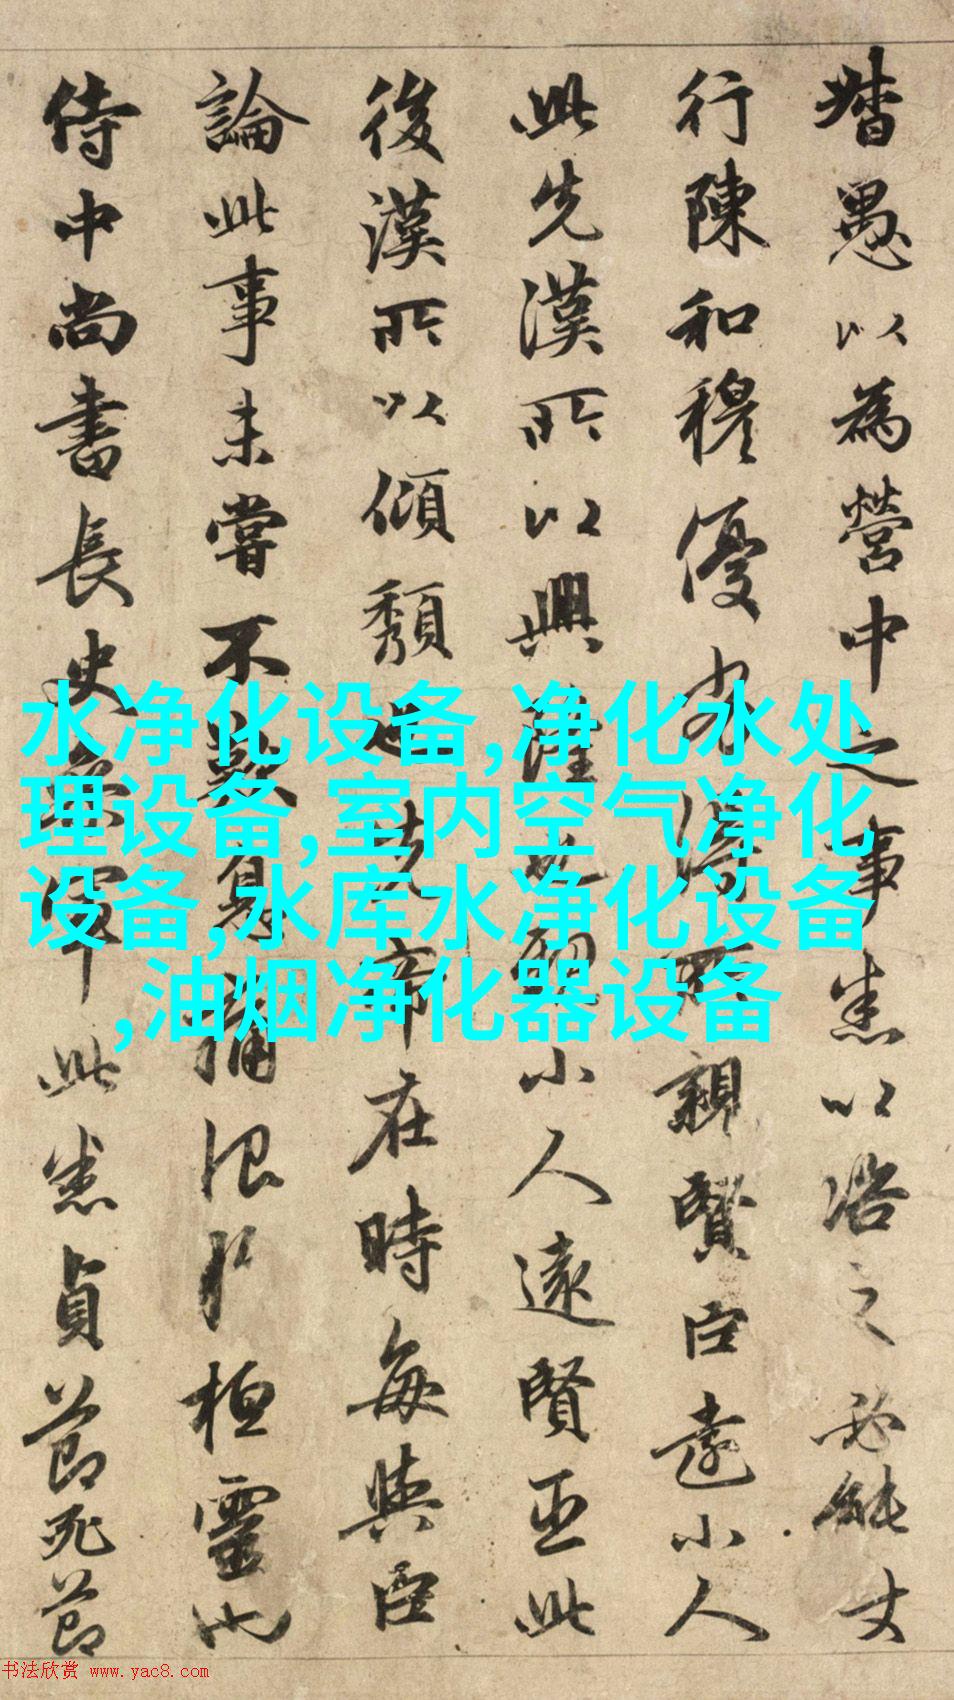 督愚以為營中之事悉以咨之必能
行陳和穆優劣得所親賢臣遠小人
此先漢所以興隆也親小人遠賢臣此
後漢所以傾頹也先帝在時每與臣
論此事未嘗不歎息痛恨於桓靈也
侍中尚書長史參軍此悉貞節死節
水净化设备,净化水处
理设备,室内空气净化
设备,水库水净化设备
,油烟净化器设备
书法欣赏 www.yac8.com